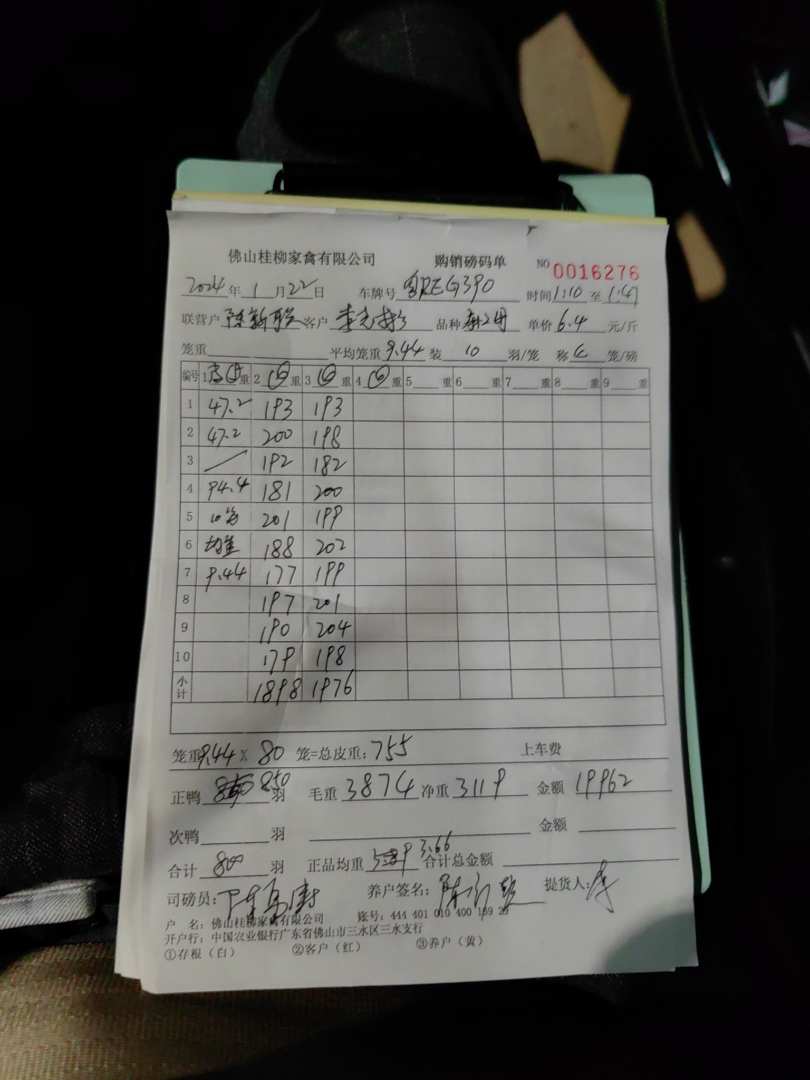 佛山桂柳家禽有限公司 购销磅码单 NO 0016276
2024年 1 月 22 日 车牌号 REG390 时间 1:10 至 1:47
联营户 陈新 客户 李 品种 单价 6.4 元/斤
笼重 平均笼重 9.44 装 10 羽/笼 称 笼/磅
编号 1 重 2 重 3 重 4 重 5 重 6 重 7 重 8 重 9 重
1 47.2 193 193
2 47.2 200 198
3 192 182
4 94.4 181 200
5 10笼 201 199
6 均重 188 202
7 9.44 177 199
8 197 201
9 190 204
10 179 198
小计 1898 1976
笼重 9.44 × 80 笼=总皮重: 755 上车费
正鸭 850 羽 毛重 3874 净重 3119 金额 19962
次鸭 羽 金额
合计 800 羽 正品均重 3.66 合计总金额
司磅员: 养户签名: 陈 提货人: 李
户 名: 佛山桂柳家禽有限公司 账号: 444 401 010 400 169 29
开户行: 中国农业银行广东省佛山市三水区三水支行
①存根（白） ②客户（红） ③养户（黄）